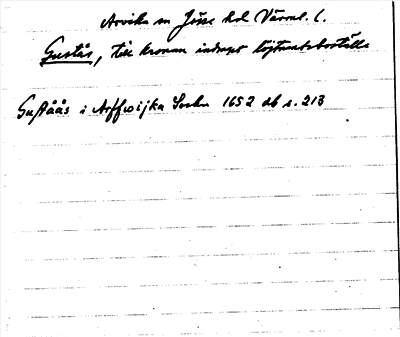 Arvika sn Jösse hd Värml. l.
Gustås, till kronan indraget löjtnantsboställe
Guståås i Arffwijka Sochn 1652 ob s. 213